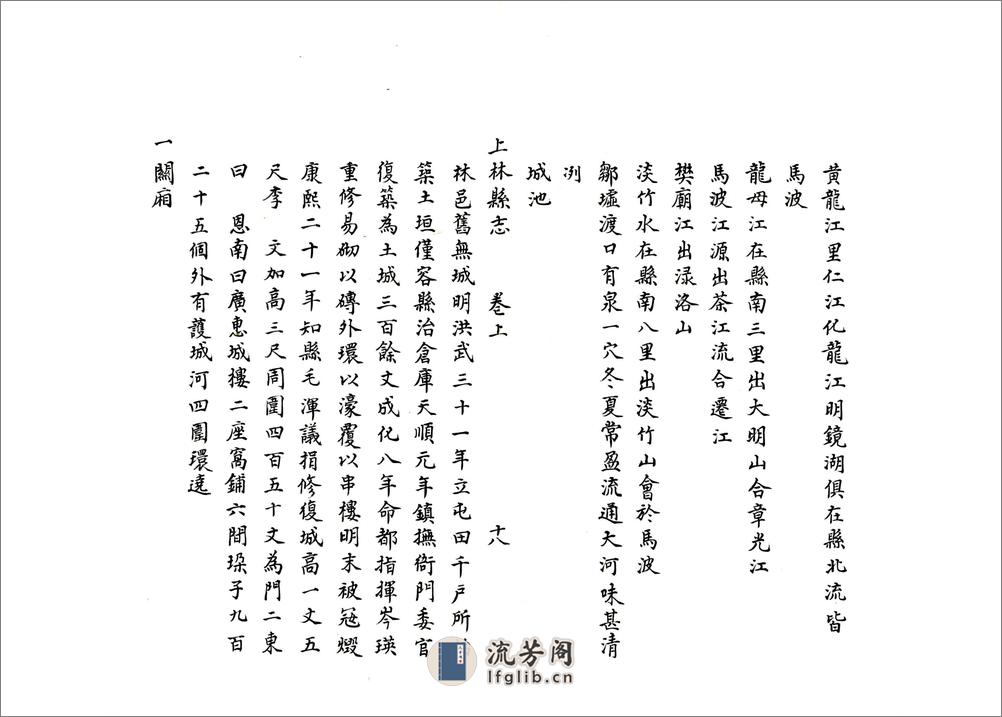 黄龍江里仁江化龍江明鏡湖俱在縣北流皆
馬波
龍母江在縣南三里出大明山合章光江
馬波江源出茶江流合遷江
樊廟江出渌洛山
淡竹水在縣南八里出淡竹山會於馬波
鄒墟渡口有泉一穴冬夏常盈流通大河味甚清
冽
城池
上林縣志 卷上 十八
林邑舊無城明洪武三十一年立屯田千戶所
築土垣僅容縣治倉庫天順元年鎮撫衙門委官
復築為土城三百餘丈成化八年命都指揮岑瑛
重修易砌以磚外環以濠覆以串樓明末被寇燬
康熙二十一年知縣毛渾議捐修復城高一丈五
尺李 文加高三尺周圍四百五十丈為門二東
曰 恩南曰廣惠城樓二座窩鋪六間垛子九百
二十五個外有護城河四圍環遶
一關廂
流芳阁
lfglib.cn